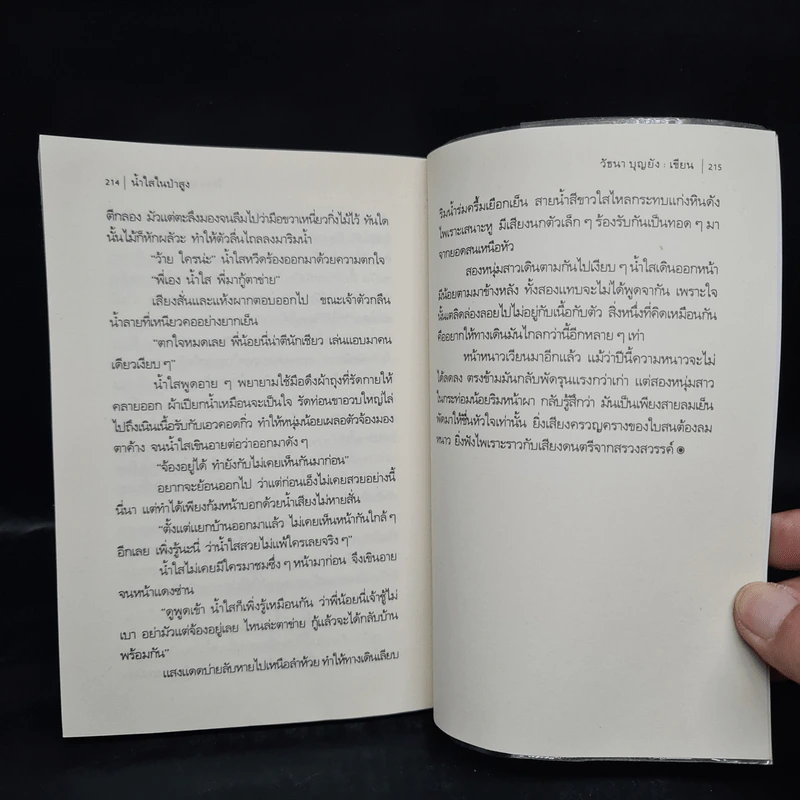 214 | น้ำใสในป่าสูง
ตีกลอง มัวแต่ตะลึงมองจนลืมไปว่ามือขวาเหนี่ยวกิ่งไม้ไว้ ทันใด
นั้นไม้ก็หักผลัวะ ทำให้ตัวลื่นไถลลงมาริมน้ำ
“ว้าย ใครน่ะ” น้ำใสหวีดร้องออกมาด้วยความตกใจ
“พี่เอง น้ำใส พี่มากู้ตาข่าย”
เสียงสั่นและแห้งผากตอบออกไป ขณะเจ้าตัวกลืน
น้ำลายที่เหนียวคออย่างยากเย็น
“ตกใจหมดเลย พี่น้อยนี่น่าตีนักเชียว เล่นแอบมาคน
เดียวเงียบ ๆ”
น้ำใสพูดอาย ๆ พยายามใช้มือดึงผ้าถุงที่รัดกายให้
คลายออก ผ้าเปียกน้ำเหมือนจะเป็นใจ รัดท่อนขาอวบใหญ่ไล่
ไปถึงเนินเนื้อรับกับเอวคอดกิ่ว ทำให้หนุ่มน้อยเผลอตัวจ้องมอง
ตาค้าง จนน้ำใสเขินอายต่อว่าออกมาดัง ๆ
“จ้องอยู่ได้ ทำยังกับไม่เคยเห็นกันมาก่อน”
อยากจะย้อนออกไป ว่าแต่ก่อนเอ็งไม่เคยสวยอย่างนี้
นี่นา แต่ทำได้เพียงก้มหน้าบอกด้วยน้ำเสียงไม่หายสั่น
“ตั้งแต่แยกบ้านออกมาแล้ว ไม่เคยเห็นหน้ากันใกล้ ๆ
อีกเลย เพิ่งรู้นะนี่ ว่าน้ำใสสวยไม่แพ้ใครเลยจริง ๆ”
น้ำใสไม่เคยมีใครมาชมซึ่ง ๆ หน้ามาก่อน จึงเขินอาย
จนหน้าแดงซ่าน
“ดูพูดเข้า น้ำใสก็เพิ่งรู้เหมือนกัน ว่าพี่น้อยนี่เจ้าชู้ไม่
เบา อย่ามัวแต่จ้องอยู่เลย ไหนล่ะตาข่าย กู้แล้วจะได้กลับบ้าน
พร้อมกัน”
แสงแดดบ่ายลับหายไปเหนือลำห้วย ทำให้ทางเดินเลียบ
วัธนา บุญยัง : เขียน | 215
ริมน้ำร่มครึ้มเยือกเย็น สายน้ำสีขาวใสไหลกระทบแก่งหินดัง
ไพเราะเสนาะหู มีเสียงนกตัวเล็ก ๆ ร้องรับกันเป็นทอด ๆ มา
จากยอดสนเหนือหัว
สองหนุ่มสาวเดินตามกันไปเงียบ ๆ น้ำใสเดินออกหน้า
มีน้อยตามมาข้างหลัง ทั้งสองแทบจะไม่ได้พูดจากัน เพราะใจ
นั้นเตลิดล่องลอยไปไม่อยู่กับเนื้อกับตัว สิ่งหนึ่งที่คิดเหมือนกัน
คืออยากให้ทางเดินมันไกลกว่านี้อีกหลาย ๆ เท่า
หน้าหนาวเวียนมาอีกแล้ว แม้ว่าปีนี้ความหนาวจะไม่
ได้ลดลง ตรงข้ามมันกลับพัดรุนแรงกว่าเก่า แต่สองหนุ่มสาว
ในกระท่อมน้อยริมหน้าผา กลับรู้สึกว่า มันเป็นเพียงสายลมเย็น
พัดมาให้ชื่นหัวใจเท่านั้น ยิ่งเสียงครวญครางของใบสนต้องลม
หนาว ยิ่งฟังไพเราะราวกับเสียงดนตรีจากสรวงสวรรค์ ๏